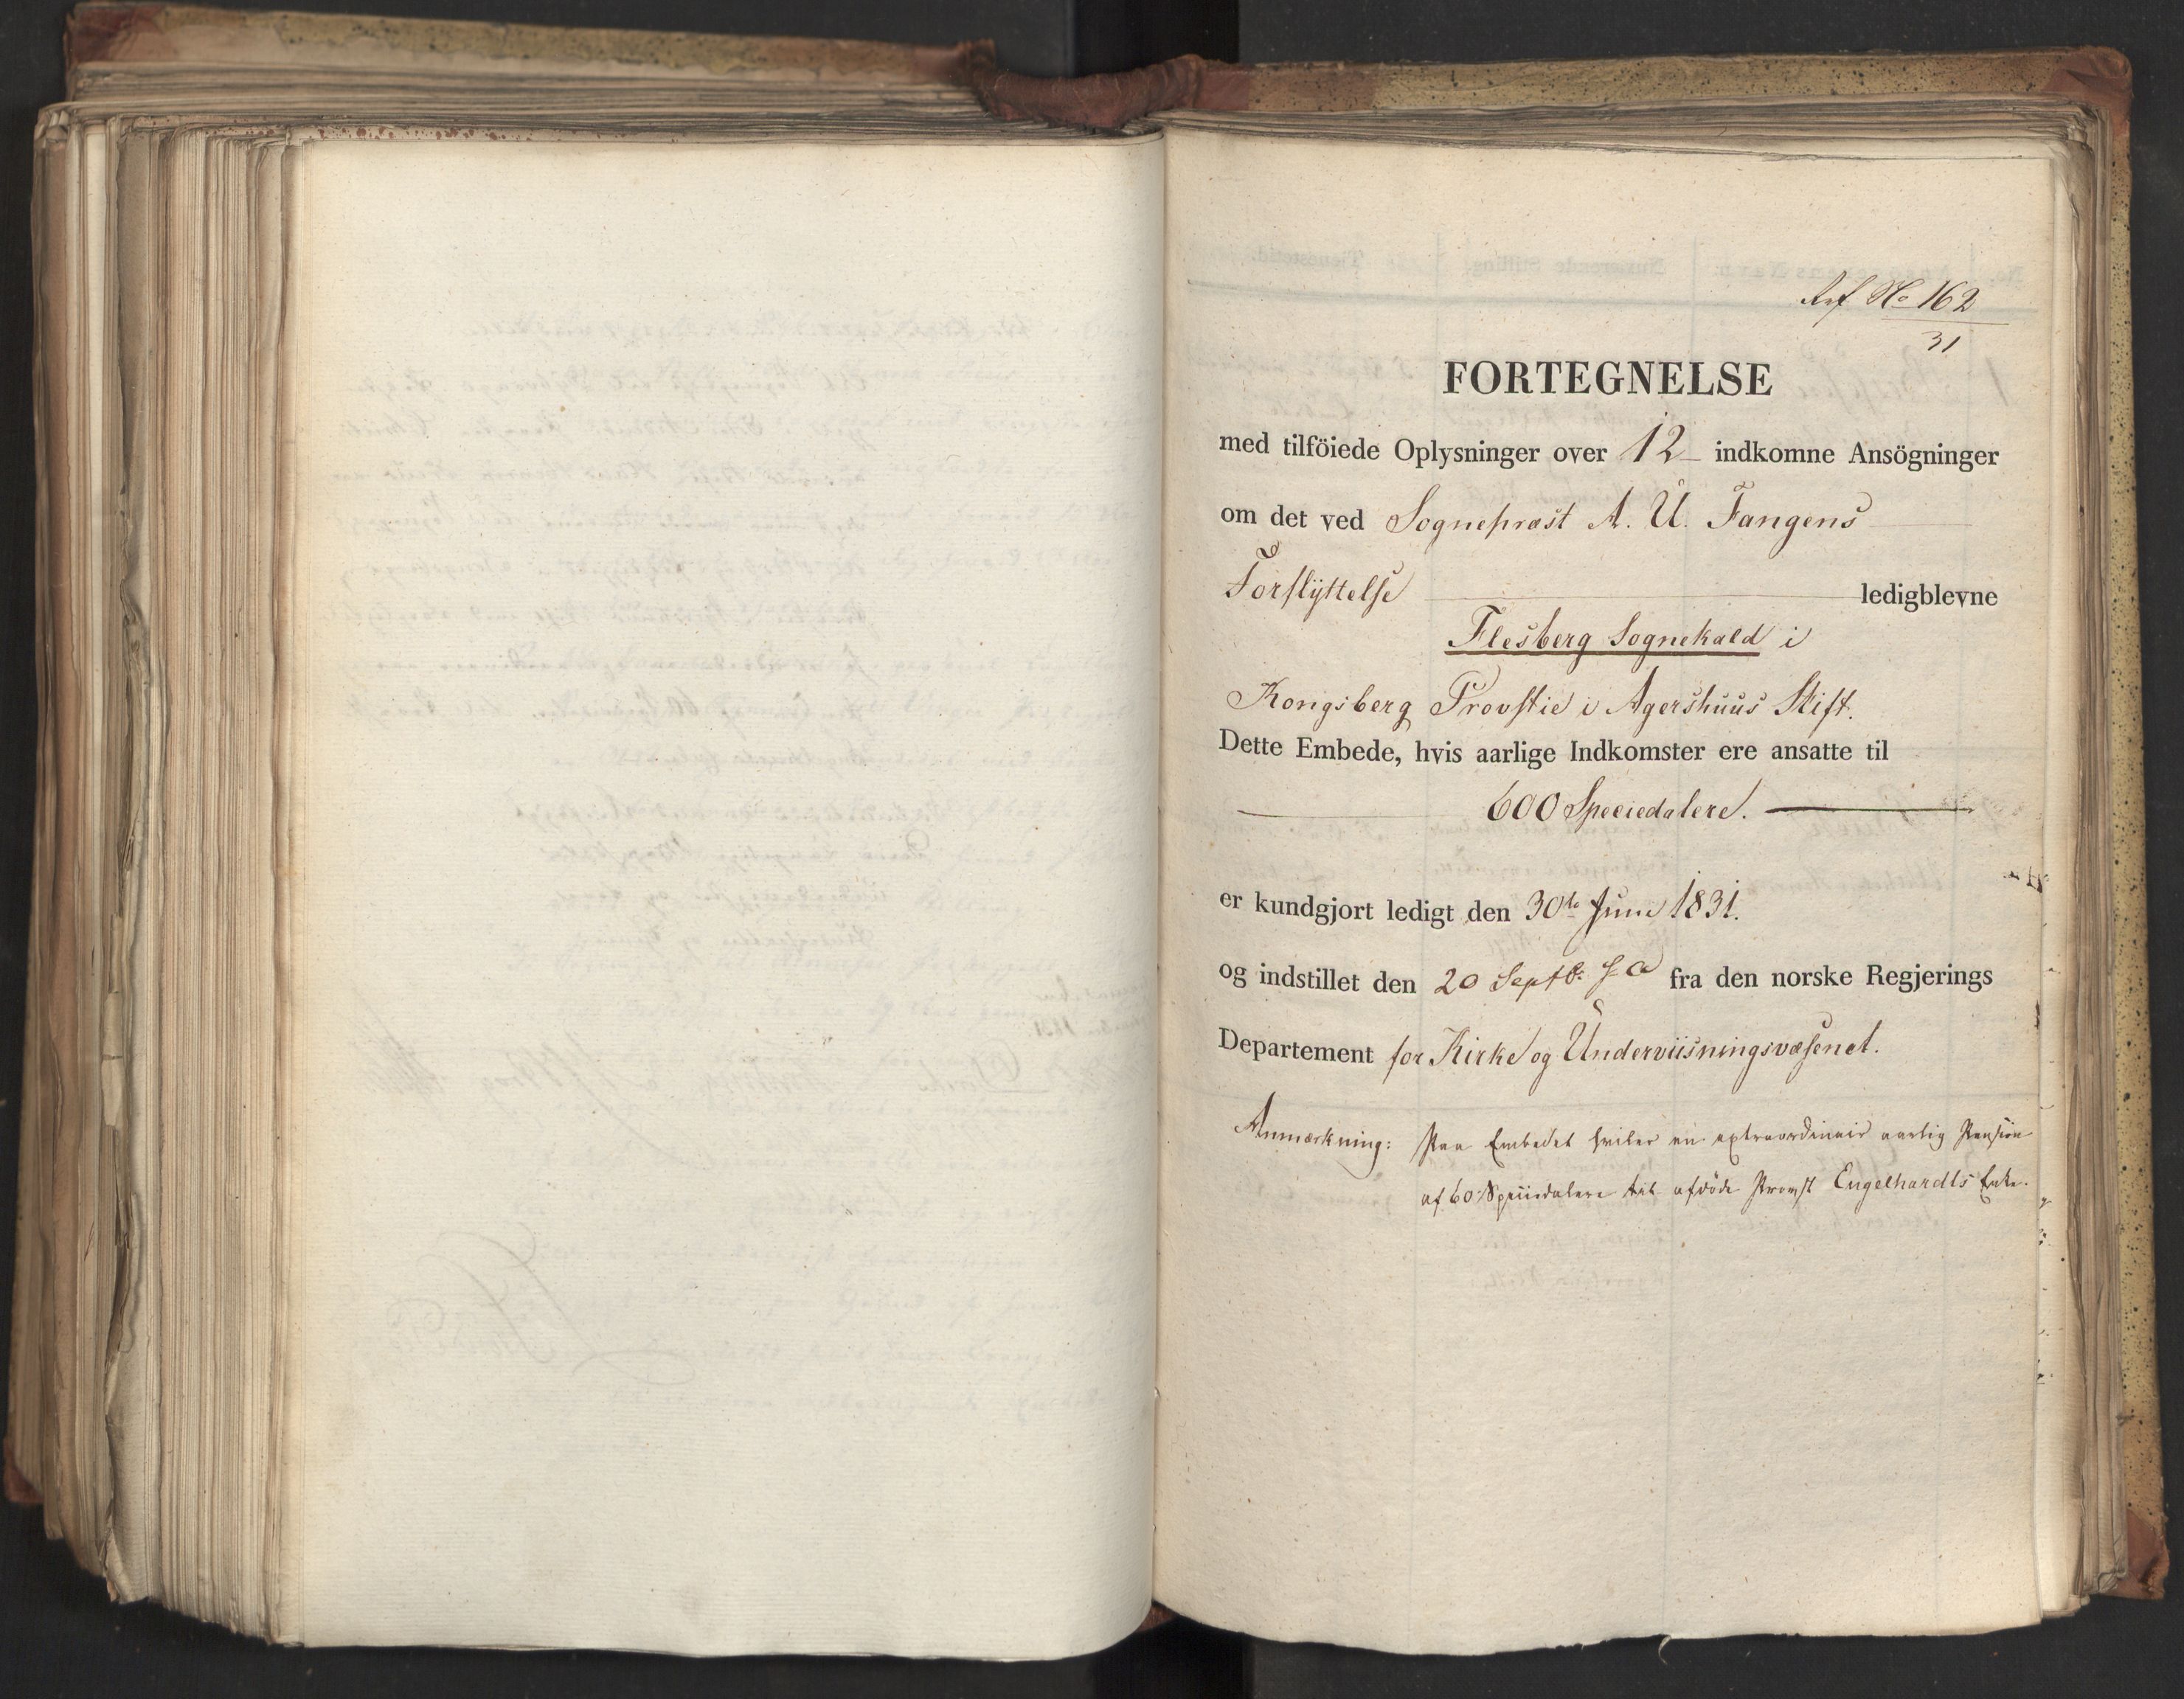 Ref No 162
31
FORTEGNELSE
med tilföiede Oplysninger over 12 indkomne Ansögninger
om det ved Sognepræst A. U. Fangens
Forflÿttelse ledigblevne
Flesberg Sognekald i
Kongsberg Provstie i Agershuus Stift.
Dette Embede, hvis aarlige Indkomster ere ansatte til
600 Speciedalere.
er kundgjort ledigt den 30te Juni 1831.
og indstillet den 20 Septb: s. a fra den norske Regjerings
Departement for Kirke og Underviisningsvæsenet.
Anmærkning: Paa Embedet hviler en extraordinair aarlig Pension
af 60 Speciedalere til afdöde Provst Engelhardts Enke.